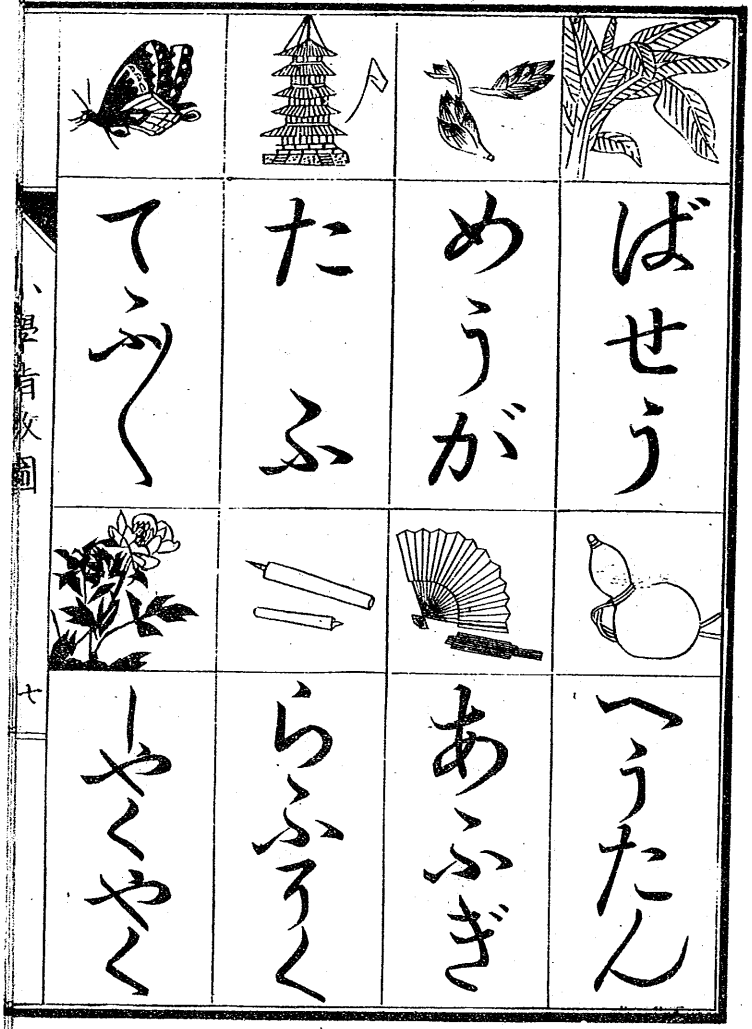 ばせう
めうが
たふ
てふ〱
へうたん
あふぎ
らふそく
しやくやく
小學指教圖
七